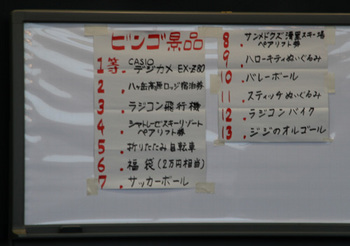 ビンゴ景品
1等 CASIO
デジカメ EX-Z80
2. 八ヶ岳高原ロッジ宿泊券
3. ラジコン飛行機
4. シャトレーゼスキーリゾート
ペアリフト券
5. 折りたたみ自転車
6. 福袋(2万円相当)
7. サッカーボール
8. サンメドウズ清里スキー場
ペアリフト券
9. ハローキティぬいぐるみ
10. バレーボール
11. スティッチぬいぐるみ
12. ラジコンバイク
13. ジジのオルゴール